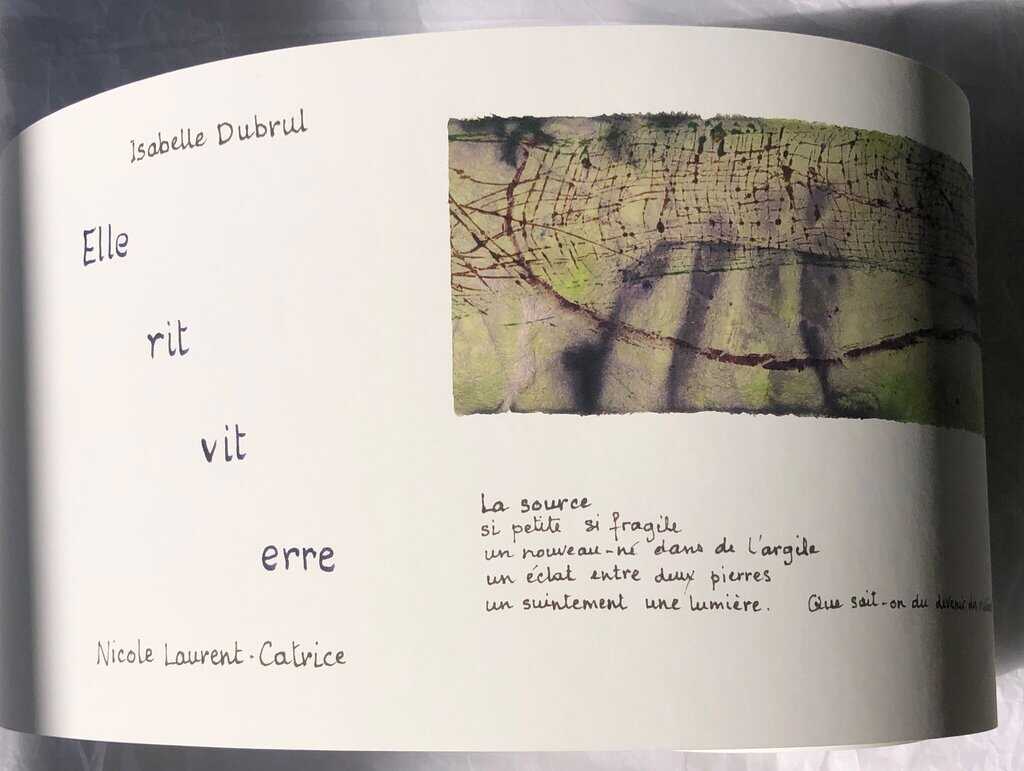 Isabelle Dubrul
Elle
rit
vit
erre
Nicole Laurent-Catrice
La source
si petite si fragile
un nouveau-né dans de l'argile
un éclat entre deux pierres
un suintement une lumière. Que sait-on du devenir